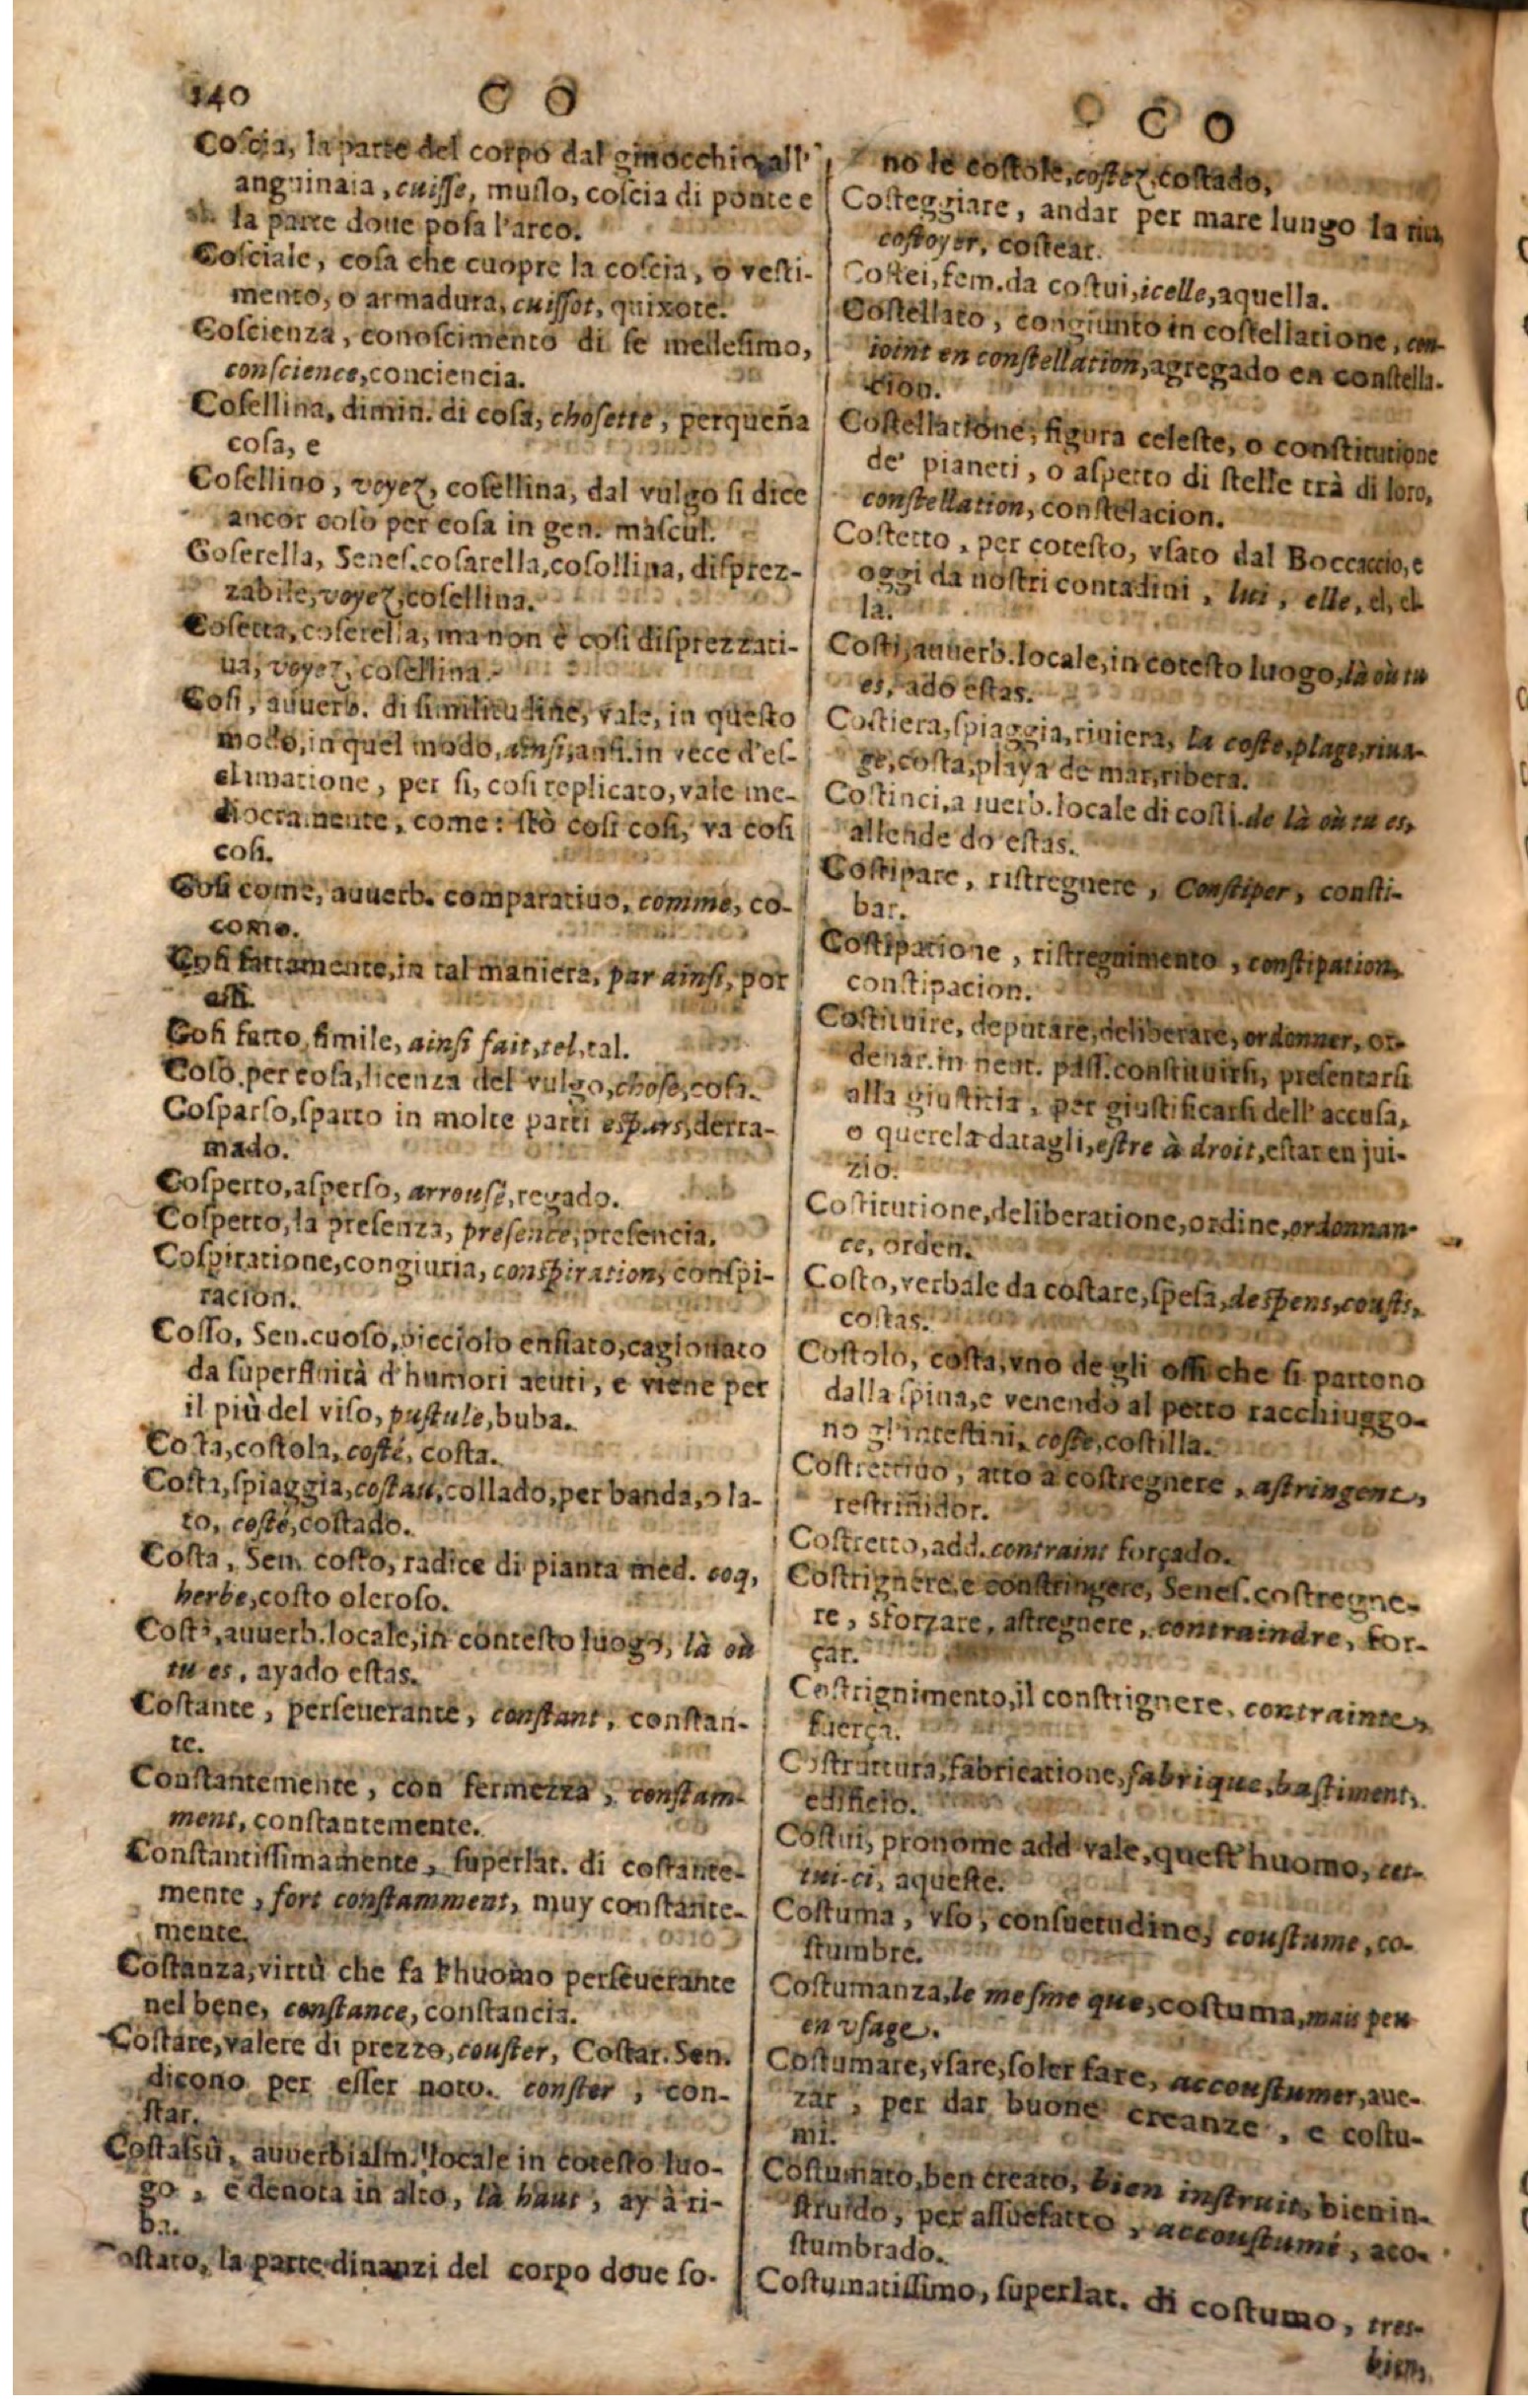 140
C O
Coscia, la parte del corpo dal ginocchio all'
anguinaia, cuisse, muslo, coscia di ponte e
la parte doue posa l'arco.
Cosciale, cosa che cuopre la coscia, o vesti-
mento, o armadura, cuissot, quixote.
Coscienza, conoscimento di se medesimo,
conscience, conciencia.
Cosellina, dimin. di cosa, chosette, perqueña
cosa, e
Cosellino, voyez, cosellina, dal vulgo si dice
ancor coso per cosa in gen. mascul.
Coserella, Senes. cosarella, cosollina, disprez-
zabile, voyez, cosellina.
Cosetta, coserella, ma non è cosi disprezzati-
ua, voyez, cosellina.
Cosi, auuerb. di similitudine, vale, in questo
modo, in quel modo, ainsi, ansi. in vece d'es-
climatione, per si, cosi replicato, vale me-
diocramente, come: stò cosi cosi, va cosi
cosi.
Cosi come, auuerb. comparatiuo, comme, co-
como.
Cosi fattamente, in tal maniera, par ainsi, por
assi.
Cosi fatto, simile, ainsi fait, tel, tal.
Coso. per cosa, licenza del vulgo, chose, cosa.
Cosparso, sparto in molte parti espars, derra-
mado.
Cosperto, asperso, arrousé, regado.
Cospetto, la presenza, presence, presencia.
Cospiratione, congiuria, conspiration, conspi-
racion.
Cosso, Sen. cuoso, picciolo enfiato, cagionato
da superfluità d'humori acuti, e viene per
il più del viso, pustule, buba.
Costa, costola, costé, costa.
Costa, spiaggia, costau, collado, per banda, o la-
to, costé, costado.
Costa, Sen. costo, radice di pianta med. coq,
herbe, costo oleroso.
Costì, auuerb. locale, in contesto luogo, là où
tu es, ayado estas.
Costante, perseuerante, constant, constan-
te.
Constantemente, con fermezza, constam-
ment, constantemente.
Constantissimamente, superlat. di costante-
mente, fort constamment, muy constante-
mente.
Costanza, virtù che fa l'huomo perseuerante
nel bene, constance, constancia.
Costare, valere di prezzo, couster, Costar. Sen.
dicono per esser noto. conster, con-
star.
Costassù, auuerbialm. locale in cotesto luo-
go, e denota in alto, là haut, ay à ri-
ba.
Costato, la parte dinanzi del corpo doue so-
C O
no le costole, costez, costado,
Costeggiare, andar per mare lungo la riua,
costoyer, costear.
Costei, fem. da costui, icelle, aquella.
Costellato, congiunto in costellatione, con-
ioint en constellation, agregado en constella-
cion.
Costellatione, figura celeste, o constitutione
de' pianeti, o aspetto di stelle trà di loro,
constellation, constelacion.
Costetto, per cotesto, vsato dal Boccaccio, e
oggi da nostri contadini, lui, elle, el, el-
la.
Costì, auuerb. locale, in cotesto luogo, là où tu
es, ado estas.
Costiera, spiaggia, riuiera, la coste, plage, riua-
ge, costa, playa de mar, ribera.
Costinci, auuerb. locale di costì. de là où tu es,
allende do estas.
Costipare, ristregnere, Constiper, consti-
bar.
Costipatione, ristregnimento, constipation,
constipacion.
Costituire, deputare, deliberare, ordonner, or-
denar. in neut. pass. constituirsi, presentarsi
alla giustitia, per giustificarsi dell' accusa,
o querela datagli, estre à droit, estar en jui-
zio.
Costitutione, deliberatione, ordine, ordonnan-
ce, orden.
Costo, verbale da costare, spesa, despens, cousts,
costas.
Costolo, costa, vno de gli ossi che si partono
dalla spina, e venendo al petto racchiuggo-
no gl'intestini, coste, costilla.
Costrettiuo, atto à costregnere, astringent,
restriñidor.
Costretto, add. contraint forçado.
Costrignere, e constringere, Senes. costregne-
re, sforzare, astregnere, contraindre, for-
çar.
Costrignimento, il constrignere, contrainte,
fuerça.
Costruttura, fabricatione, fabrique, bastiment,
edificio.
Costui, pronome add vale, quest'huomo, cet-
tui-ci, aqueste.
Costuma, vso, consuetudine, coustume, co-
stumbre.
Costumanza, le mesme que, costuma, mais peu
en vsage.
Costumare, vsare, soler fare, accoustumer, aue-
zar, per dar buone creanze, e costu-
mi.
Costumato, ben creato, bien instruit, bien in-
struido, per assuefatto, accoustumé, aco-
stumbrado.
Costumatissimo, superlat. di costumo, tres-
bien,